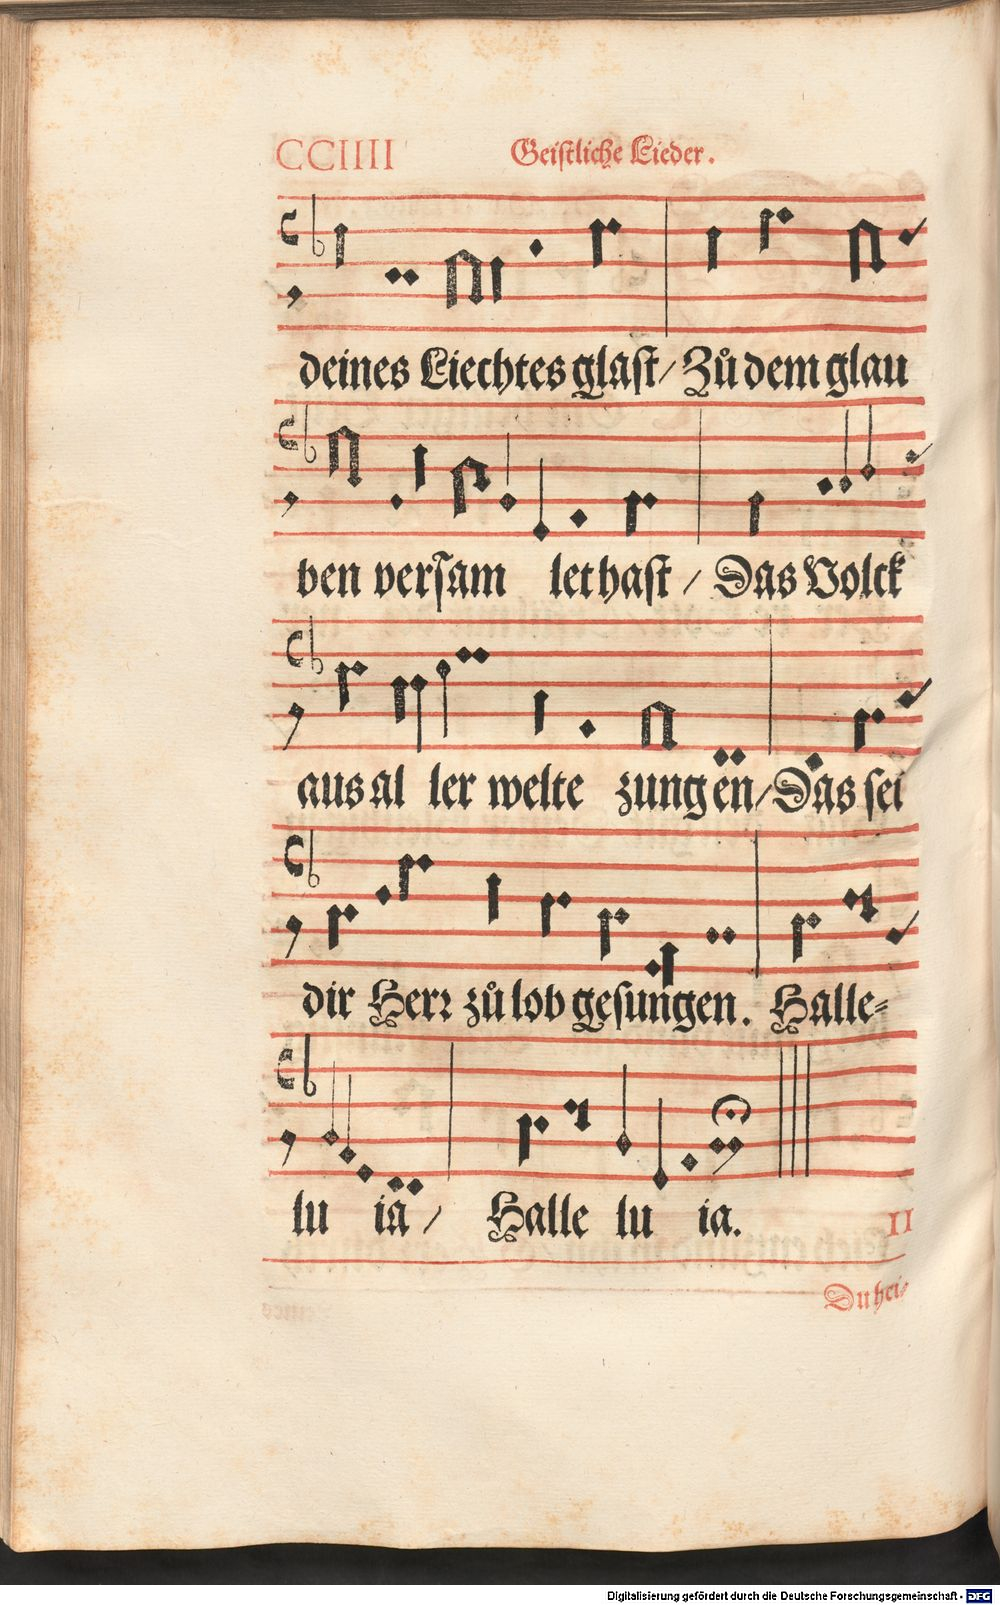 CCIIII Geistliche Lieder.
deines Liechtes glast/ Zů dem glau
ben versam let hast / Das Volck
aus al ler welte zungen/ Das sei
dir Herr zů lob gesungen. Halle=
lu ia / Halle lu ia. II
Du hei/
Digitalisierung gefördert durch die Deutsche Forschungsgemeinschaft - DFG